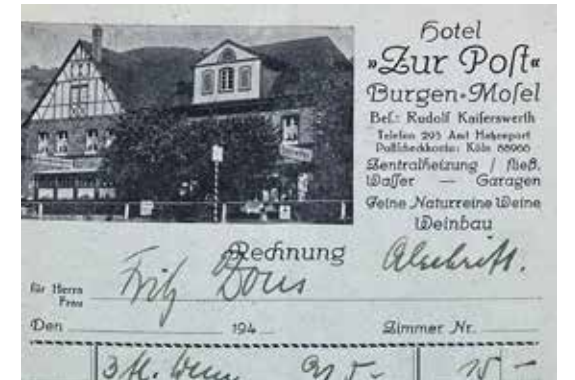 Hotel
»Zur Poſt«
Burgen-Moſel
Beſ.: Rudolf Kaiſerswerth
Telefon 293 Amt Hatzenport
Poſtſcheckkonto: Köln 88966
Zentralheizung / fließ.
Waſſer — Garagen
Feine Naturreine Weine
Weinbau
Rechnung Abſchrift.
für Herrn Fritz Dous
Frau
Den 194 Zimmer Nr.
3 15 -